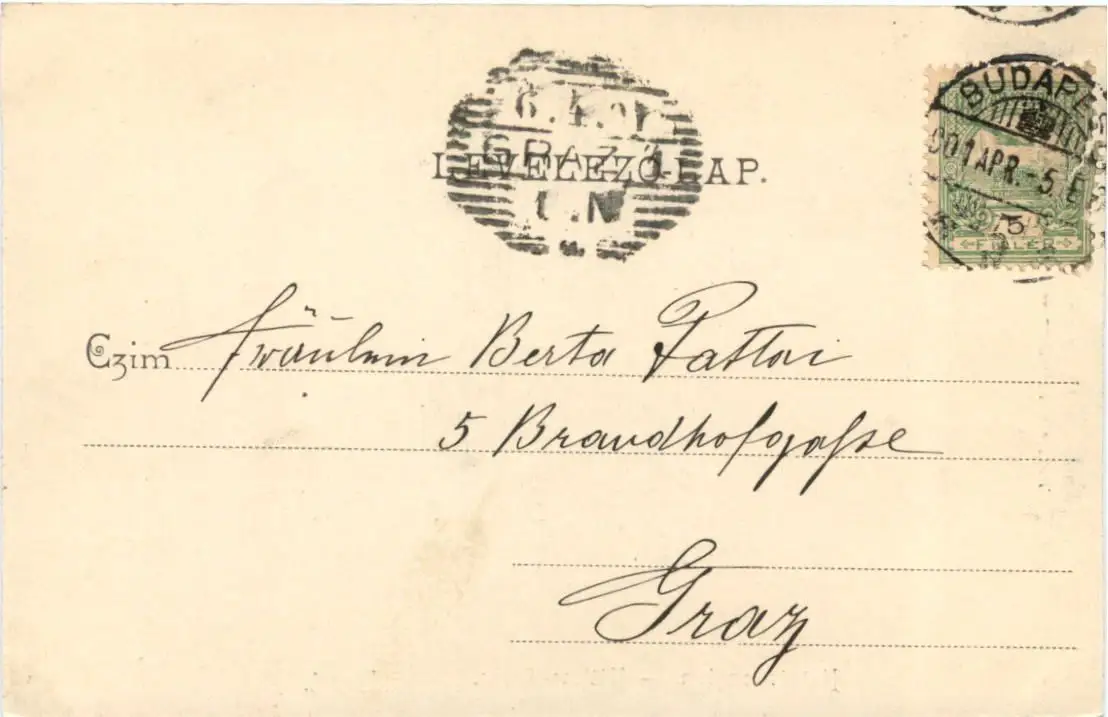 BUDAPES
901 APR.-5. E
5
FILLÉR
6.4.01
GRAZ 1
LEVELEZŐ-LAP.
Czim Fräulein Berta Pattai
5 Brandhofgasse
Graz